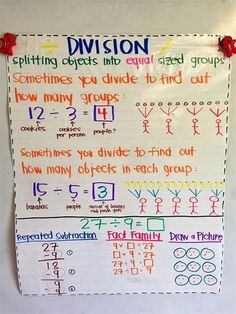 ÷ DIVISION ÷
splitting objects into equal sized groups
Sometimes you divide to find out
how many groups:
12 ÷ 3 = 4
cookies cookies per person people?
Sometimes you divide to find out
how many objects in each group:
15 ÷ 5 = 3
bananas people
27 ÷ 9 =
Repeated Subtraction Fact Family Draw a Picture
27
-9
18
-9
9
-9
9 × = 27
× 9 = 27
27 ÷ 9 =
27 ÷ = 9